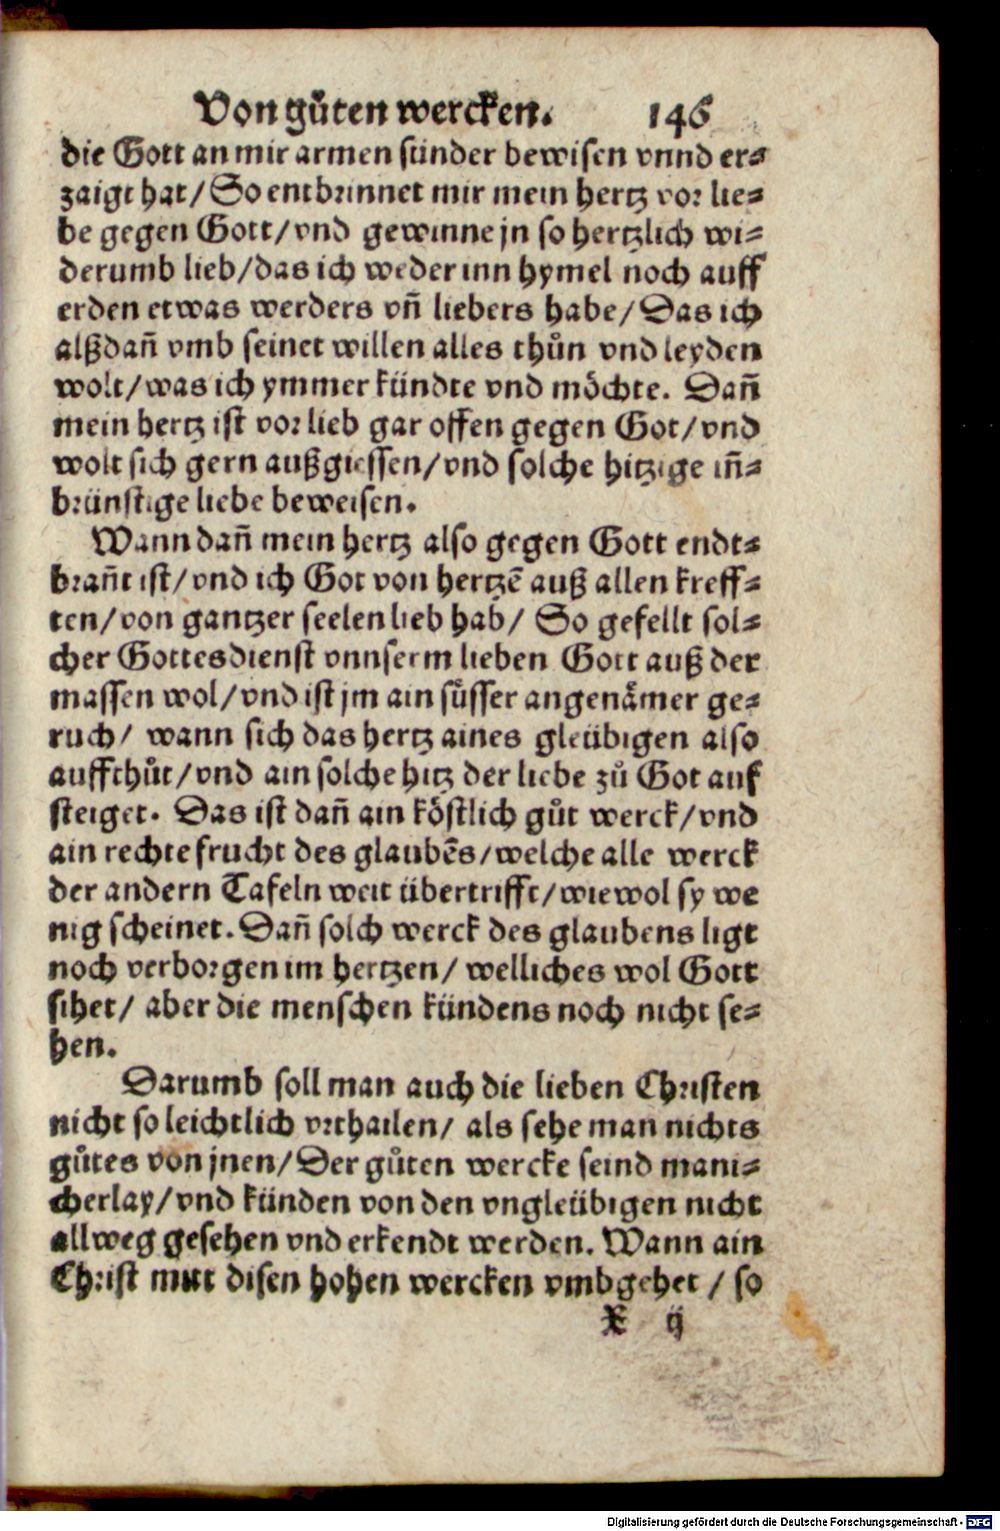 Von gůten wercken. 146
die Gott an mir armen sünder bewisen vnnd er⸗
zaigt hat/ So entbrinnet mir mein hertz vor lie⸗
be gegen Gott/ vnd gewinne jn so hertzlich wi⸗
derumb lieb/ das ich weder inn hymel noch auff
erden etwas werders vñ liebers habe/ Das ich
alßdañ vmb seinet willen alles thůn vnd leyden
wolt/ was ich ymmer kündte vnd möchte. Dañ
mein hertz ist vor lieb gar offen gegen Got/ vnd
wolt sich gern außgiessen/ vnd solche hitzige iñ⸗
brünstige liebe beweisen.
Wann dañ mein hertz also gegen Gott endt⸗
brañt ist/ vnd ich Got von hertzē auß allen kreff⸗
ten/ von gantzer seelen lieb hab/ So gefellt sol⸗
cher Gottesdienst vnnserm lieben Gott auß der
massen wol/ vnd ist jm ain süsser angenämer ge⸗
ruch/ wann sich das hertz aines gleübigen also
auffthůt/ vnd ain solche hitz der liebe zů Got auf
steiget. Das ist dañ ain köstlich gůt werck/ vnd
ain rechte frucht des glaubēs/ welche alle werck
der andern Tafeln weit übertrifft/ wiewol sy we
nig scheinet. Dañ solch werck des glaubens ligt
noch verborgen im hertzen/ welliches wol Gott
sihet/ aber die menschen kündens noch nicht se⸗
hen.
Darumb soll man auch die lieben Christen
nicht so leichtlich vrthailen/ als sehe man nichts
gůtes von jnen/ Der gůten wercke seind mani⸗
cherlay/ vnd künden von den vngleübigen nicht
allweg gesehen vnd erkendt werden. Wann ain
Christ mitt disen hohen wercken vmbgehet / so
X ij
Digitalisierung gefördert durch die Deutsche Forschungsgemeinschaft - DFG